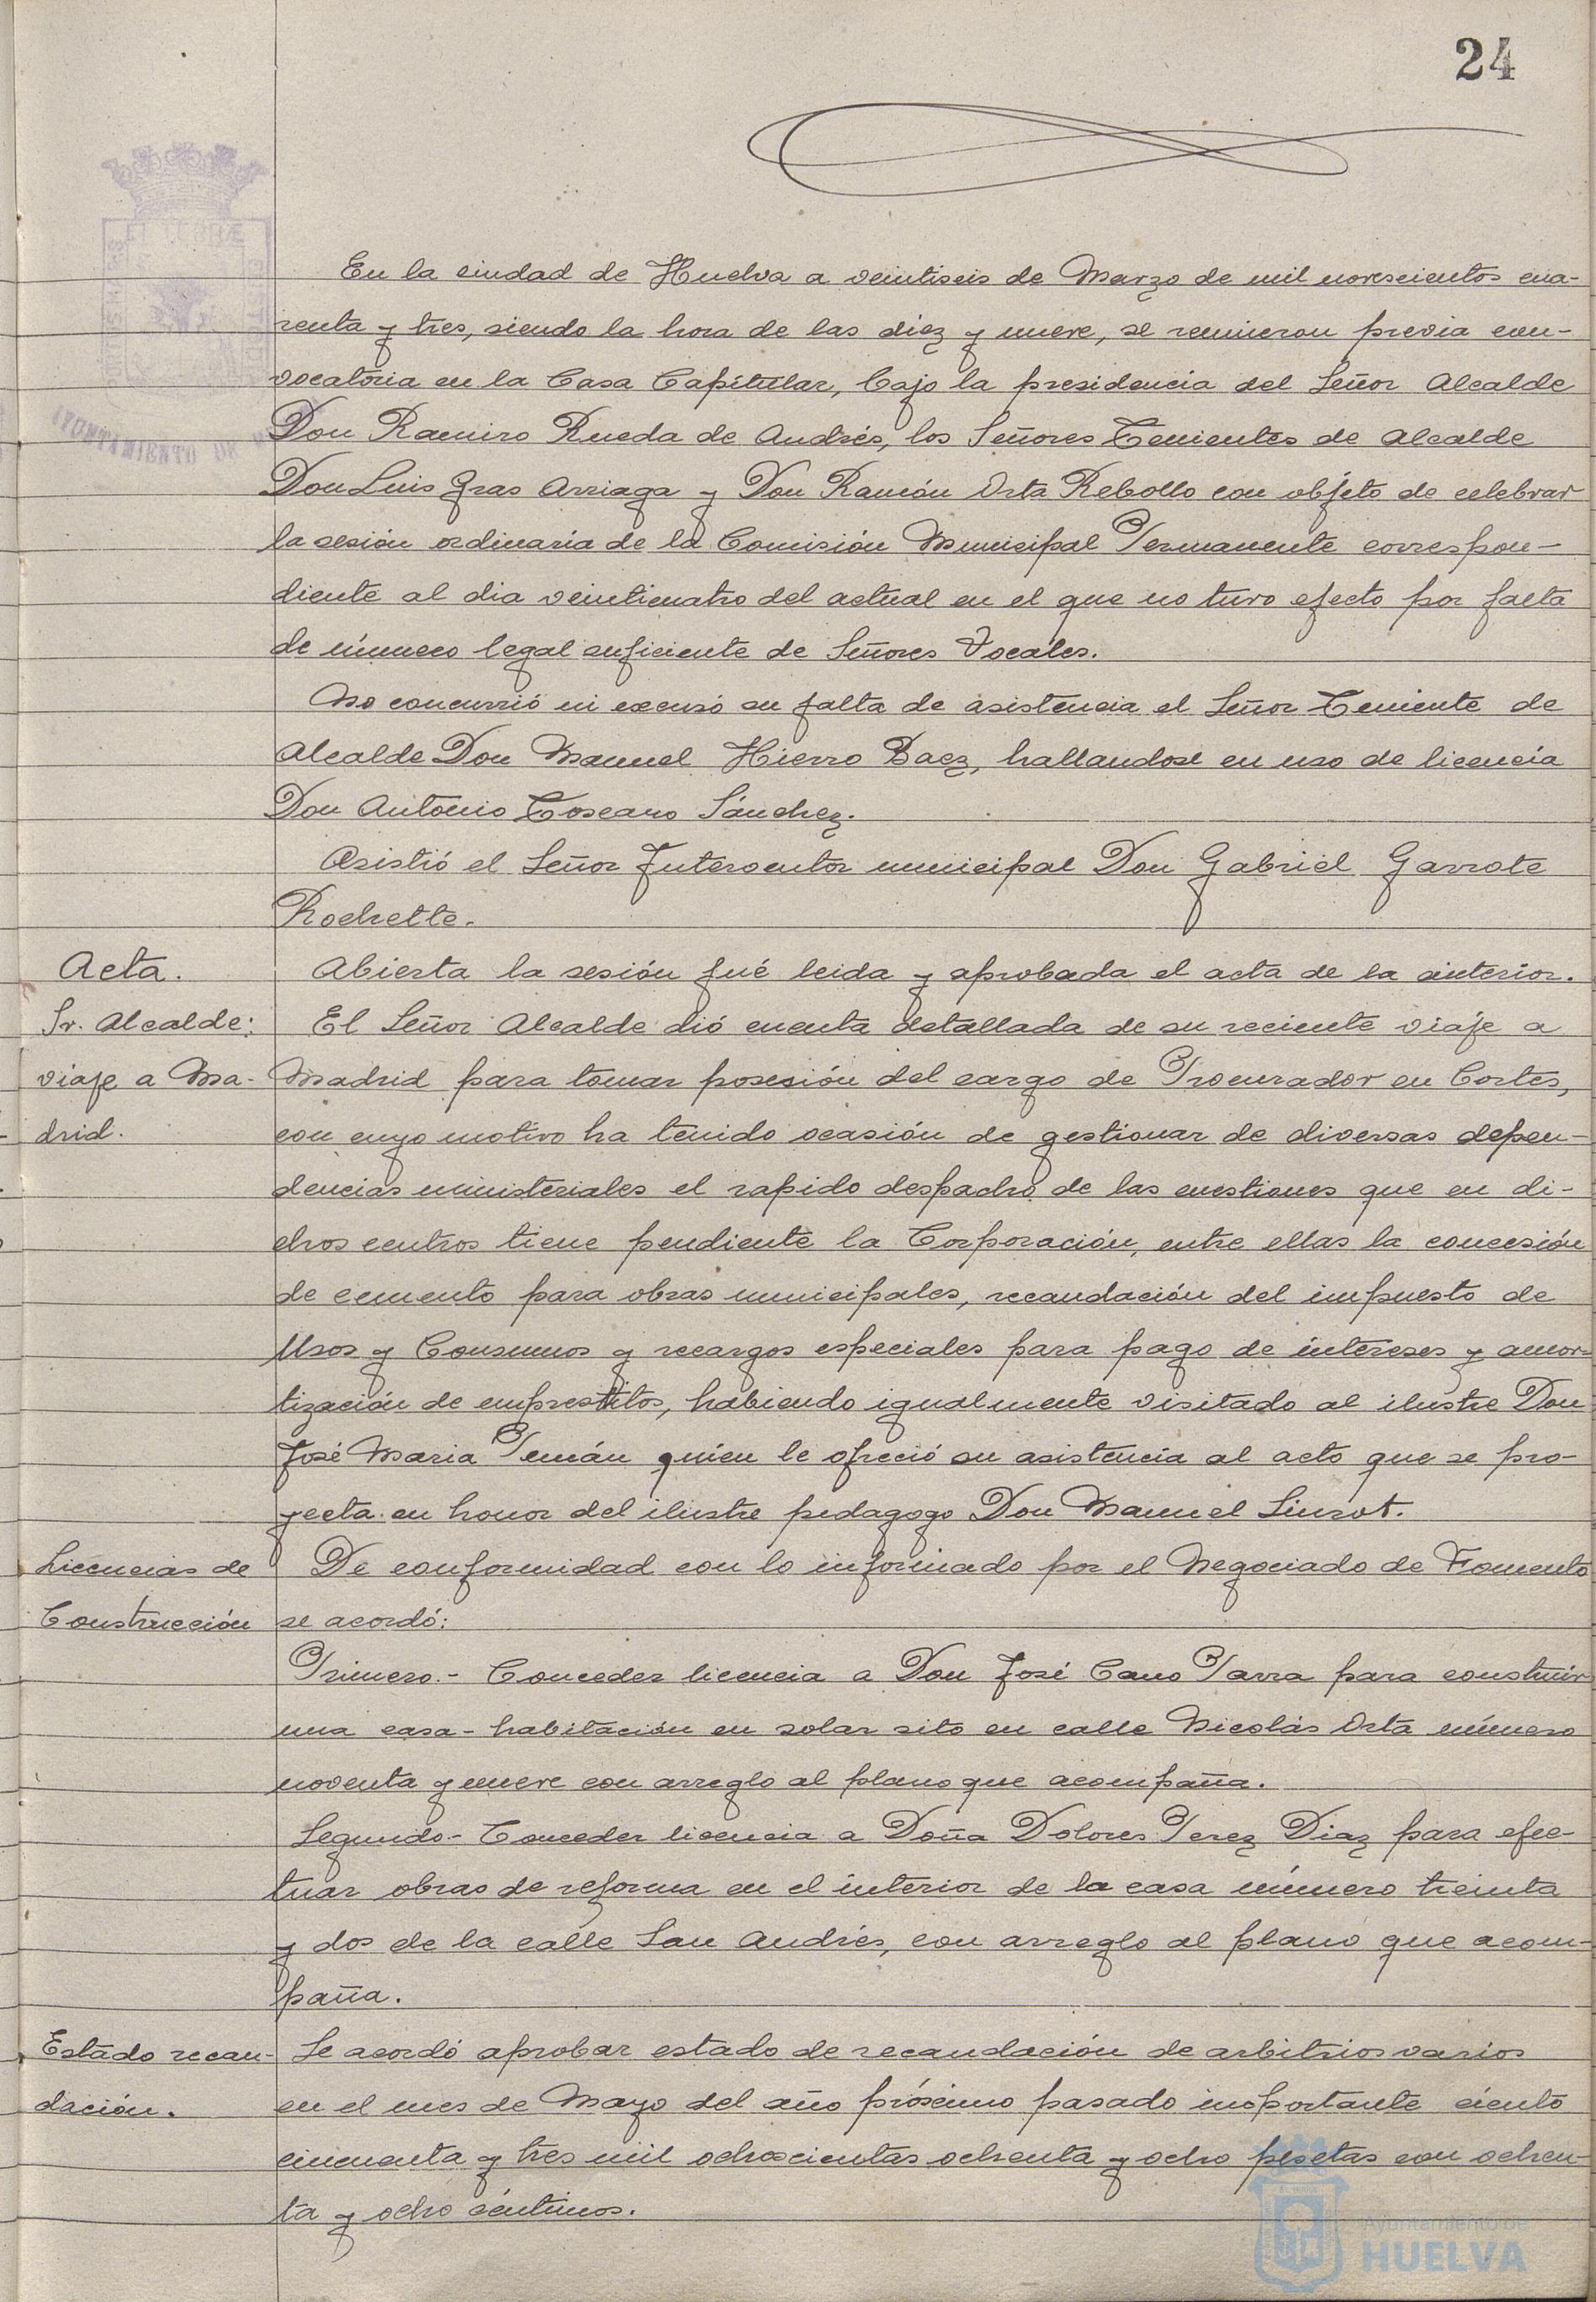 24
En la ciudad de Huelva a veintiseis de Marzo de mil novescientos cua-
renta y tres, siendo la hora de las diez y nueve, se reunieron previa con-
vocatoria en la Casa Capitular, bajo la presidencia del Señor Alcalde
Don Ramiro Rueda de Andrés, los Señores Tenientes de Alcalde
Don Luis Gras Arriaga y Don Ramón Orta Rebollo con objeto de celebrar
la sesión ordinaria de la Comisión Municipal Permanente correspon-
diente al dia veinticuatro del actual en el que no tuvo efecto por falta
de número legal suficiente de Señores Vocales.
No concurrió ni excusó su falta de asistencia el Señor Teniente de
Alcalde Don Manuel Hierro Baez, hallandose en uso de licencia
Don Antonio Toscano Sánchez.
Asistió el Señor Interventor municipal Don Gabriel Garrote
Rochette.
Acta.
Abierta la sesión fué leida y aprobada el acta de la anterior.
Sr. Alcalde:
viaje a Ma-
drid.
El Señor Alcalde dió cuenta detallada de su reciente viaje a
Madrid para tomar posesión del cargo de Procurador en Cortes,
con cuyo motivo ha tenido ocasión de gestionar de diversas depen-
dencias ministeriales el rapido despacho de las cuestiones que en di-
chos centros tiene pendiente la Corporación, entre ellas la concesión
de cemento para obras municipales, recaudación del impuesto de
Usos y Consumos y recargos especiales para pago de intereses y amor-
tización de emprestitos, habiendo igualmente visitado al ilustre Don
José Maria Pemán quien le ofreció su asistencia al acto que se pro-
yecta en honor del ilustre pedagogo Don Manuel Siurot.
Licencias de
Construcción
De conformidad con lo informado por el Negociado de Fomento
se acordó:
Primero.- Conceder licencia a Don José Cano Parra para construir
una casa-habitación en solar sito en calle Nicolás Orta número
noventa y nueve con arreglo al plano que acompaña.
Segundo.- Conceder licencia a Doña Dolores Perez Diaz para efec-
tuar obras de reforma en el interior de la casa número treinta
y dos de la calle San Andrés, con arreglo al plano que acom-
paña.
Estado recau-
dación.
Se acordó aprobar estado de recaudación de arbitrios varios
en el mes de Mayo del año próximo pasado importante ciento
cincuenta y tres mil ochocientas ochenta y ocho pesetas con ochen-
ta y ocho céntimos.
Ayuntamiento de
HUELVA